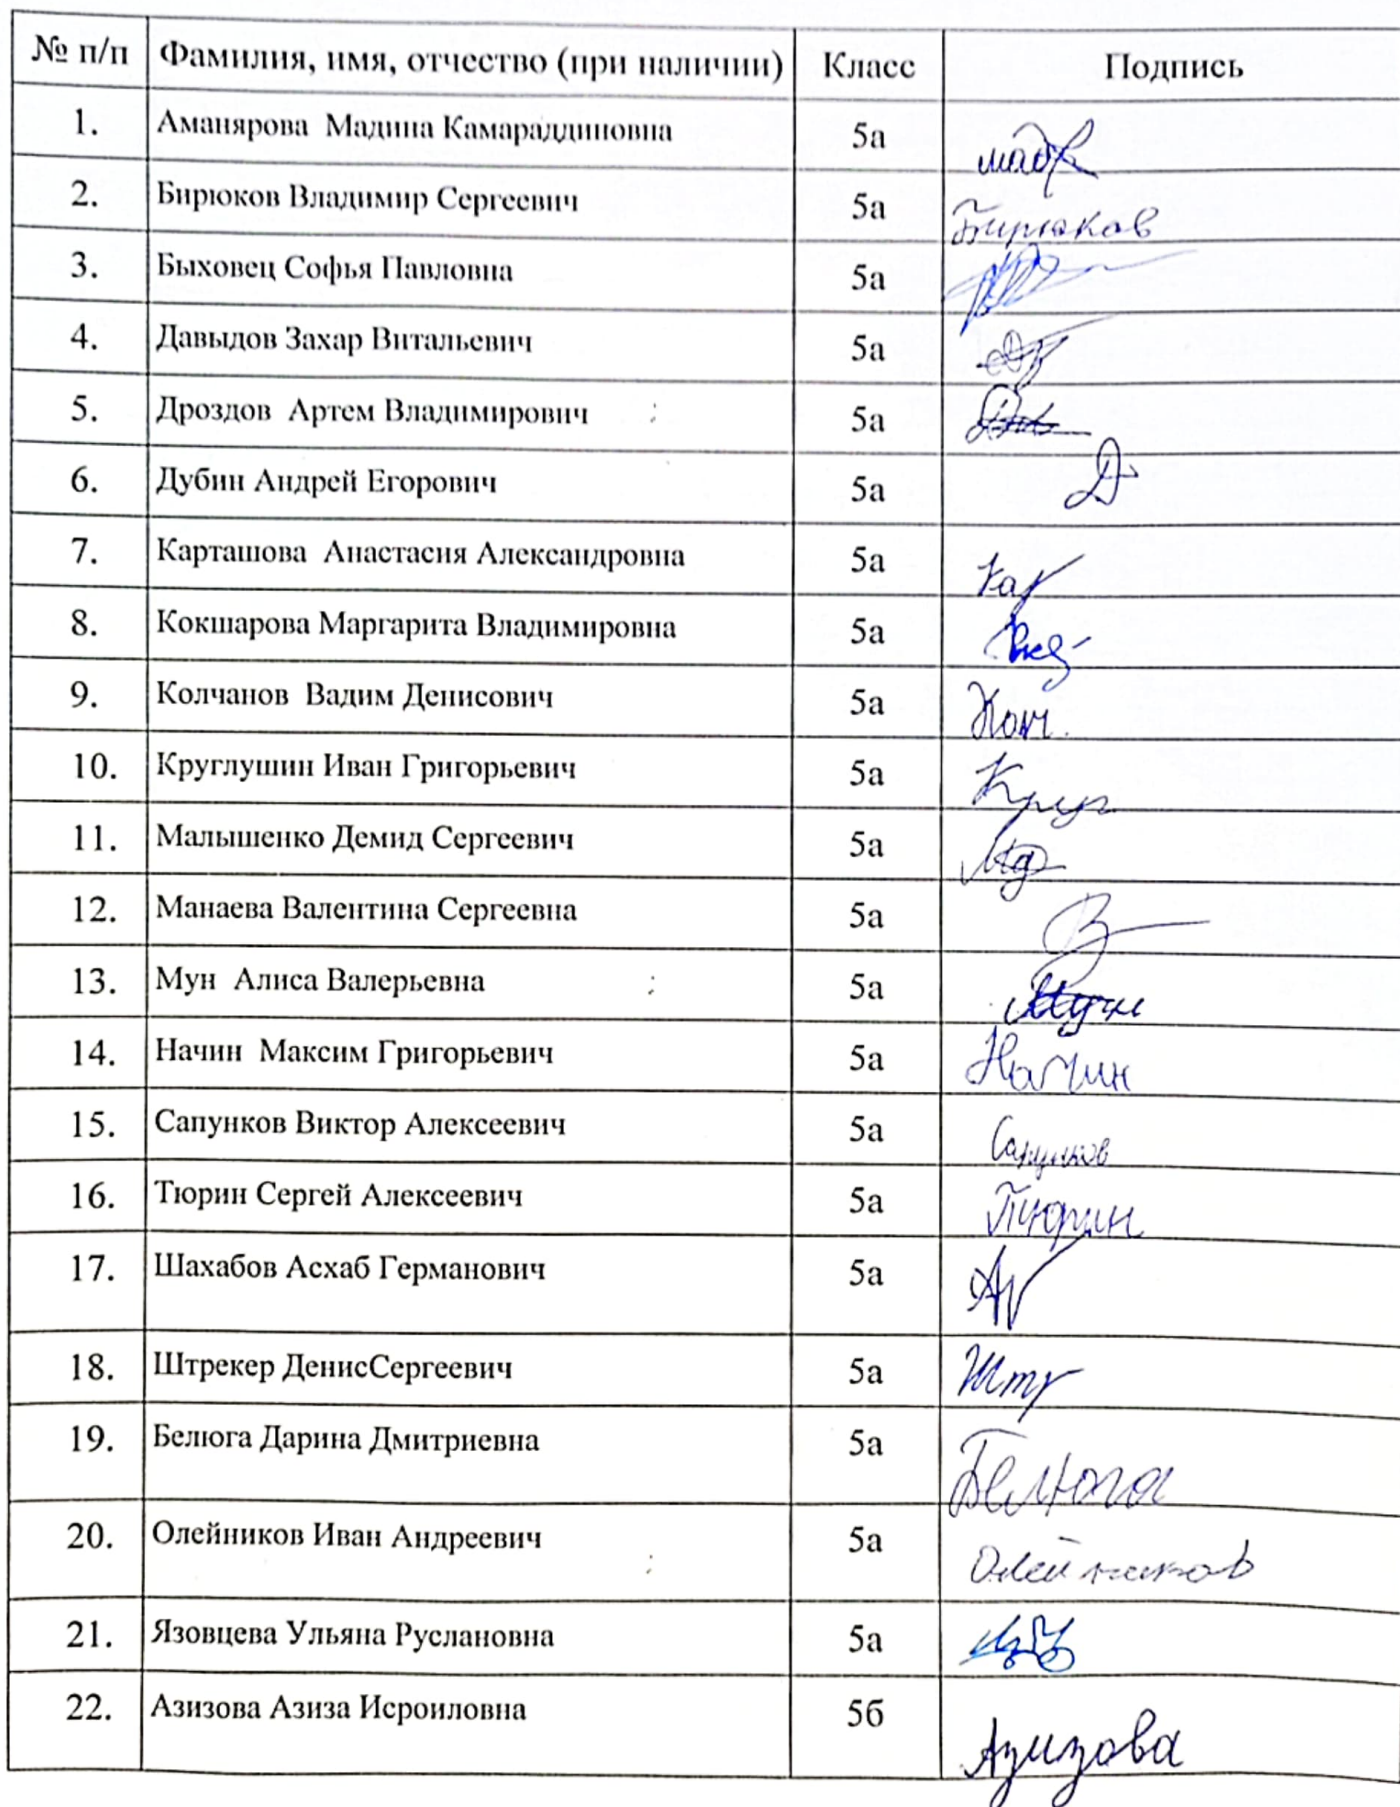 № п/п Фамилия, имя, отчество (при наличии) Класс Подпись
1. Аманярова Мадина Камараддиновна 5а
2. Бирюков Владимир Сергеевич 5а Бирюков
3. Быховец Софья Павловна 5а
4. Давыдов Захар Витальевич 5а
5. Дроздов Артем Владимирович 5а
6. Дубин Андрей Егорович 5а Д
7. Карташова Анастасия Александровна 5а Кар
8. Кокшарова Маргарита Владимировна 5а
9. Колчанов Вадим Денисович 5а
10. Круглушин Иван Григорьевич 5а Круг
11. Малышенко Демид Сергеевич 5а
12. Манаева Валентина Сергеевна 5а В
13. Мун Алиса Валерьевна 5а Мун
14. Начин Максим Григорьевич 5а Начин
15. Сапунков Виктор Алексеевич 5а Сапунков
16. Тюрин Сергей Алексеевич 5а Тюрин
17. Шахабов Асхаб Германович 5а
18. Штрекер ДенисСергеевич 5а Штр
19. Белюга Дарина Дмитриевна 5а Белюга
20. Олейников Иван Андреевич 5а Олейников
21. Язовцева Ульяна Руслановна 5а
22. Азизова Азиза Исроиловна 5б Азизова